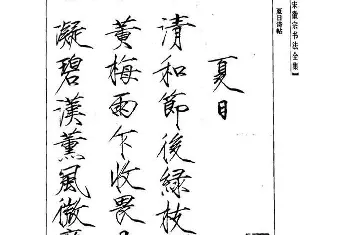 宋徽宗书法全集】
夏日诗帖
夏日
清和節後綠枝
黃梅雨乍收畏
凝碧漢薰風微